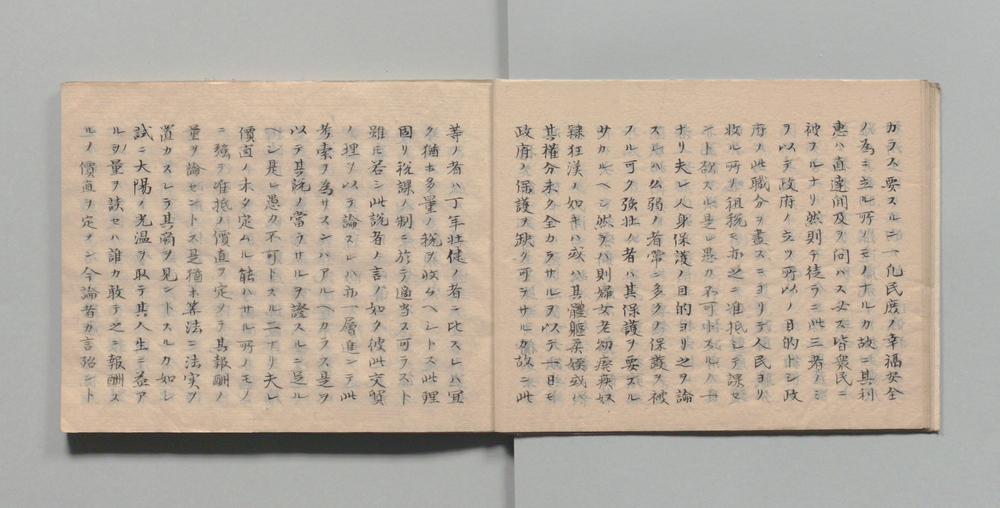 カラス要スルニ一凡民庶ノ幸福安全
ノ為ニ立ル所ノモノナルカ故ニ其利
惠ハ直達間及ヲ問ハス必ス皆衆民ニ
被フルナリ然則チ徒ラニ此三者ノミ
ヲ以テ政府ノ立ツ所以ノ目的トシ政
府ノ此職分ヲ盡スニヨリテ人民ヨリ
收ル所ノ租税モ亦之ニ准抵シテ課セ
ント欲スル是レ愚カ不可トスル一
ナリ夫レ人身保護ノ目的ヨリ之ヲ論
スレハ幺弱ノ者常ニ多クノ保護ヲ被
フル可ク強壮ノ者ハ其保護ヲ要スル
サカルヘシ然ラハ則婦女老幼癈疾奴
隷狂漢ノ如キハ或ハ其體軀柔媆或ハ
其權分未タ全カラサルヲ以テ一日モ
政府ノ保護ヲ缺ク可ラサルカ故ニ此
等ノ者ハ丁年壮健ノ者ニ比スレハ宜
ク猶ホ多量ノ税ヲ收ムヘシトス此理
固リ税課ノ制ニ於テ適當ス可ラスト
雖ㇳモ若シ此説者ノ言ノ如ク彼此交質
ノ理ヲ以テ論スレハ亦一層進ンテ此
考索ヲ為サスンハアルヘカラス是ヲ
以テ其説ノ當ラサルヲ證スルニ足ル
ヘシ是レ愚カ不可トスル二ナリ夫レ
價直ノ未タ定ムル能ハサル所ノモノ
ニ強テ准抵ノ價直ヲ定メテ其報酬ノ
量ヲ論セントス是猶ホ算法ニ法實ヲ
置カスシテ其商ヲ見ントスルカ如シ
試ニ太陽ノ光温ヲ取テ其人生ニ益ア
ルノ量ヲ談セハ誰カ敢テ之ニ報酬ス
ルノ價直ヲ定メン今論者カ言殆ント